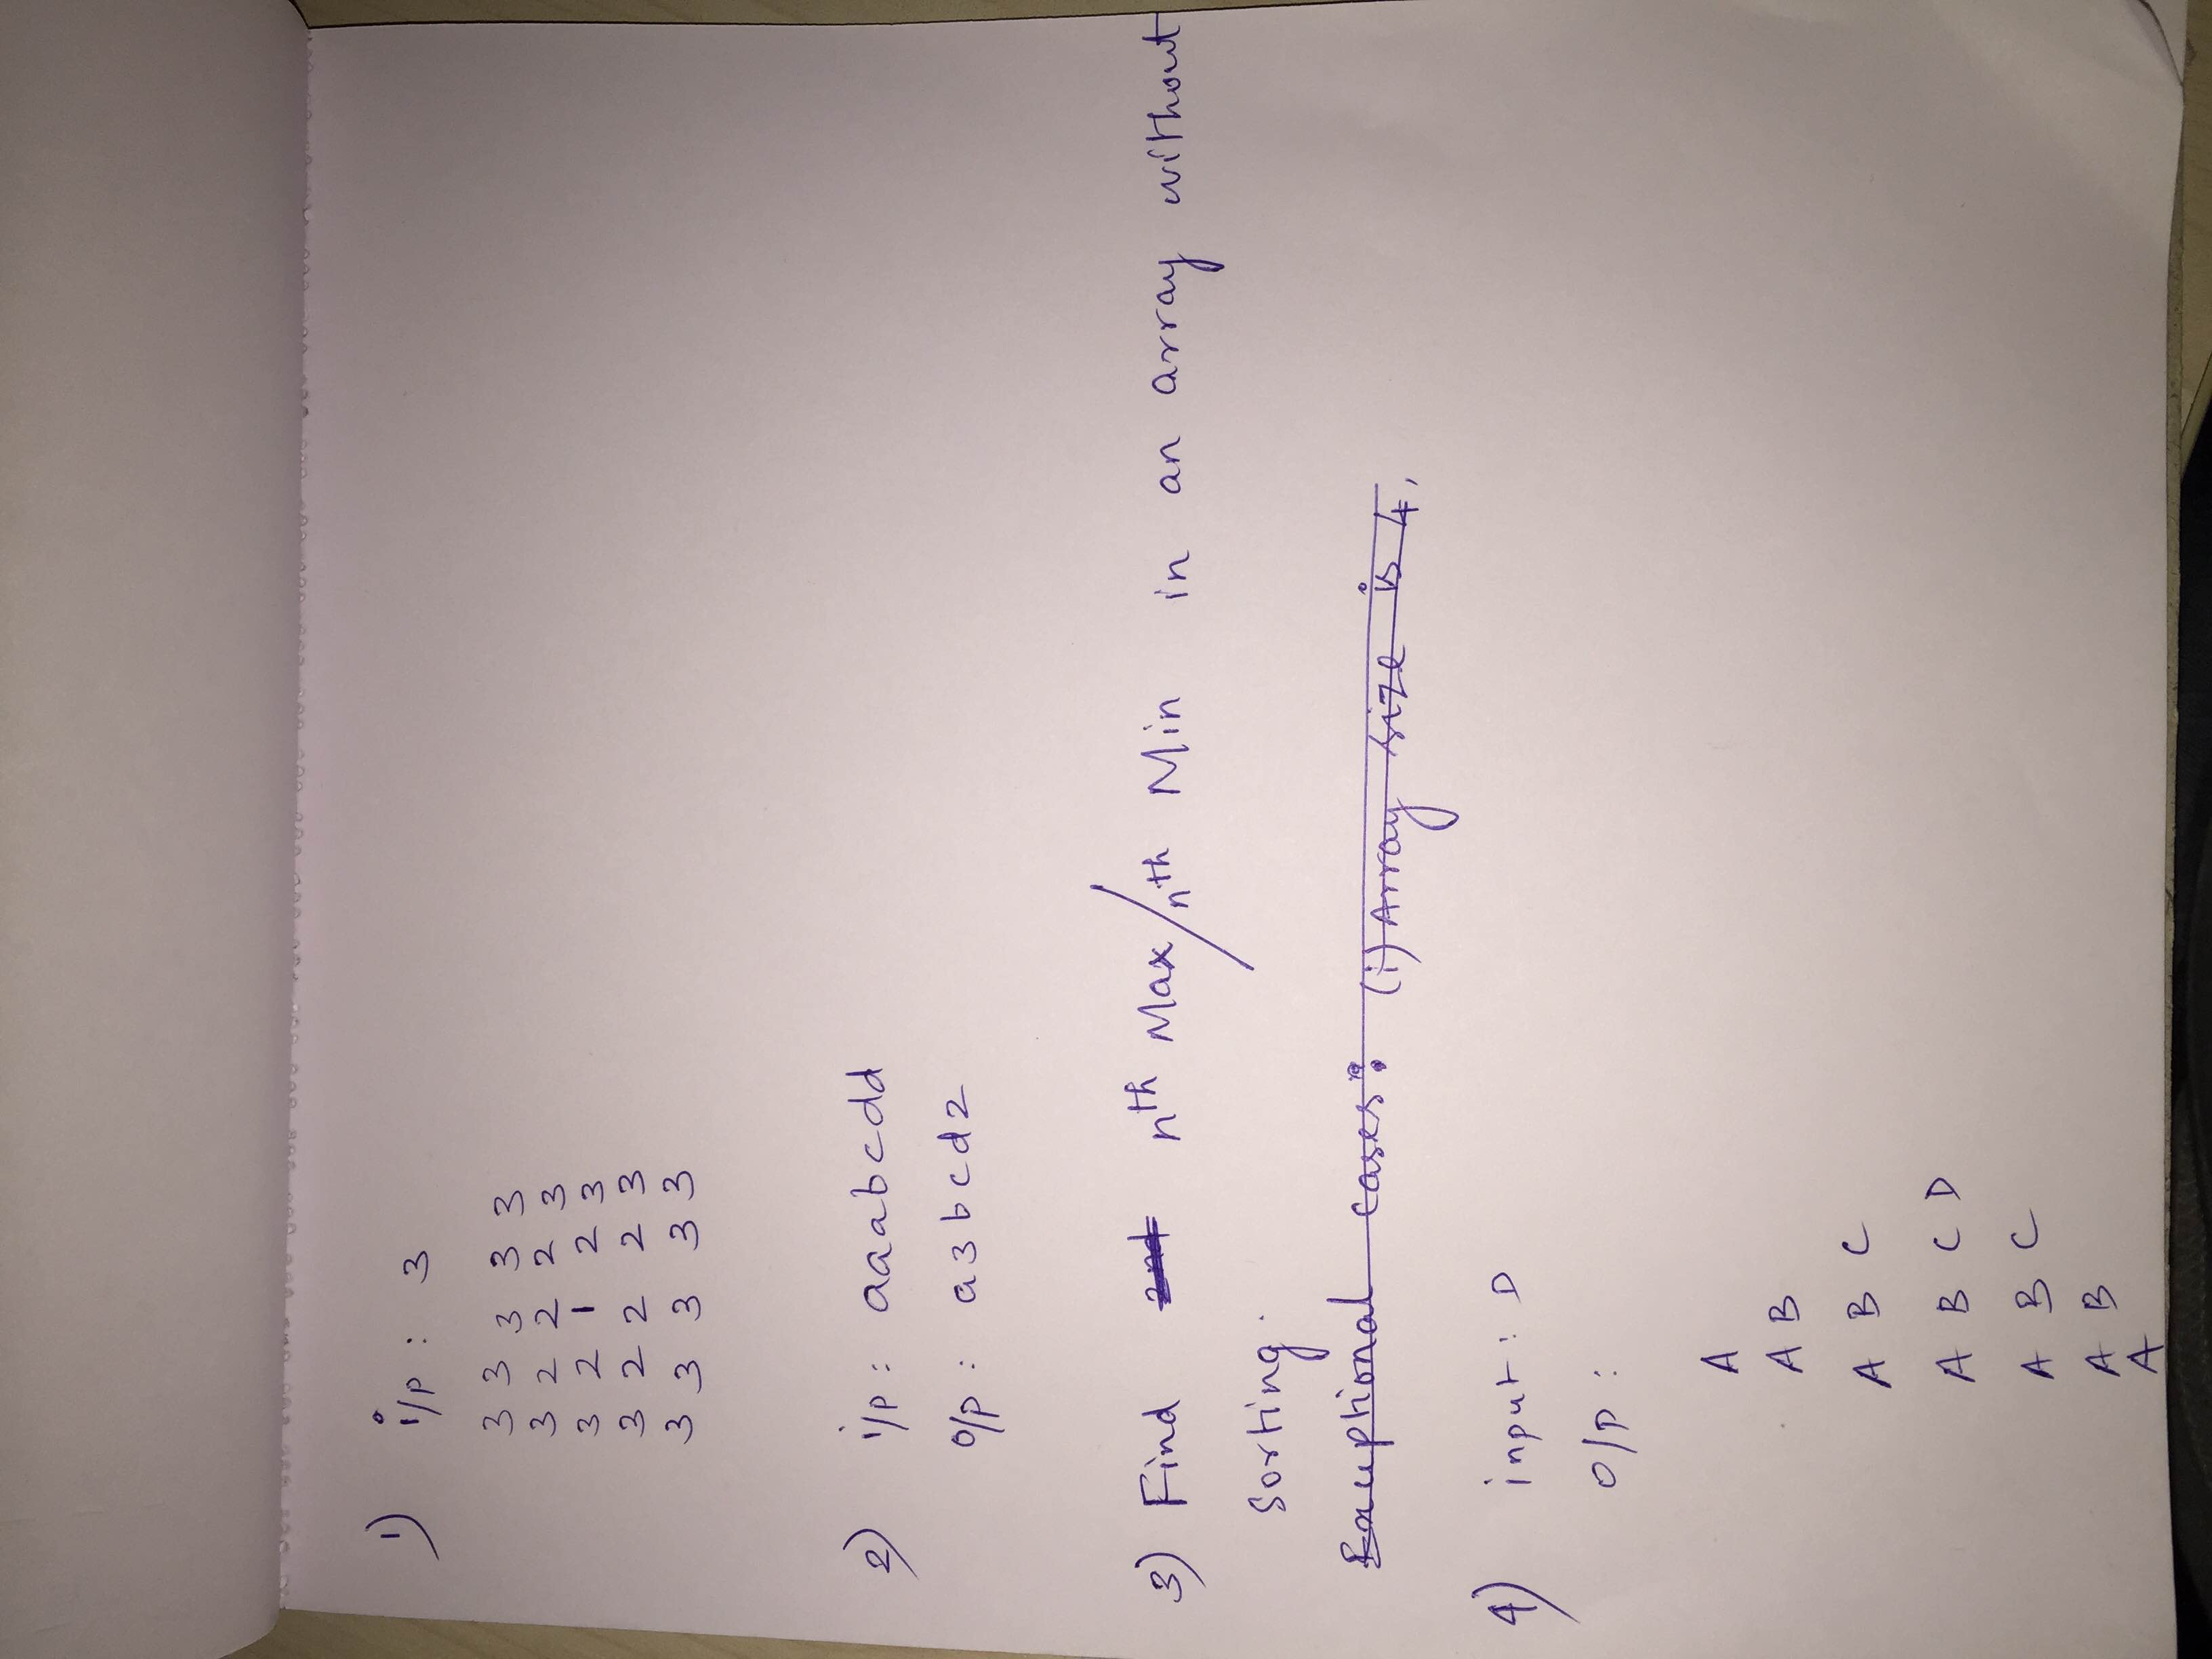 1) i/p : 3
3 3 3 3 3
3 2 2 2 3
3 2 1 2 3
3 2 2 2 3
3 3 3 3 3
2) i/p : aaabcdd
o/p : a3bcd2
3) Find 2nd nth Max/nth Min in an array without
Sorting.
Exceptional cases: (i) Array size is 4,
4) input : D
O/P :
A
A B
A B C
A B C D
A B C
A B
A